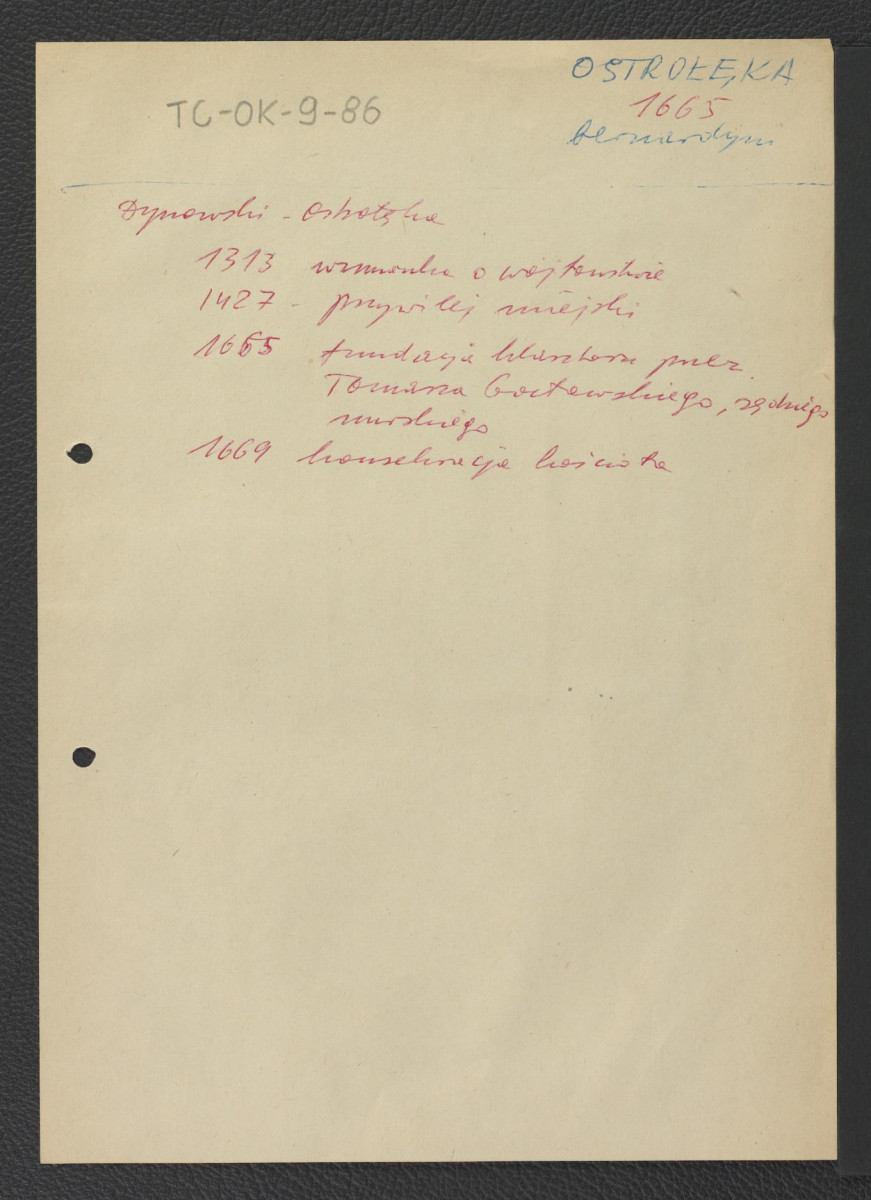 OSTROŁĘKA
TC-OK-9-86
1665
bernardyni
Dynowski - Ostrołęka
1313 wzmianka o wójtostwie
1427 - przywilej miejski
1665 fundacja klasztoru przez
Tomasza Gocłowskiego, sędziego
nurskiego
1669 konsekracja kościoła